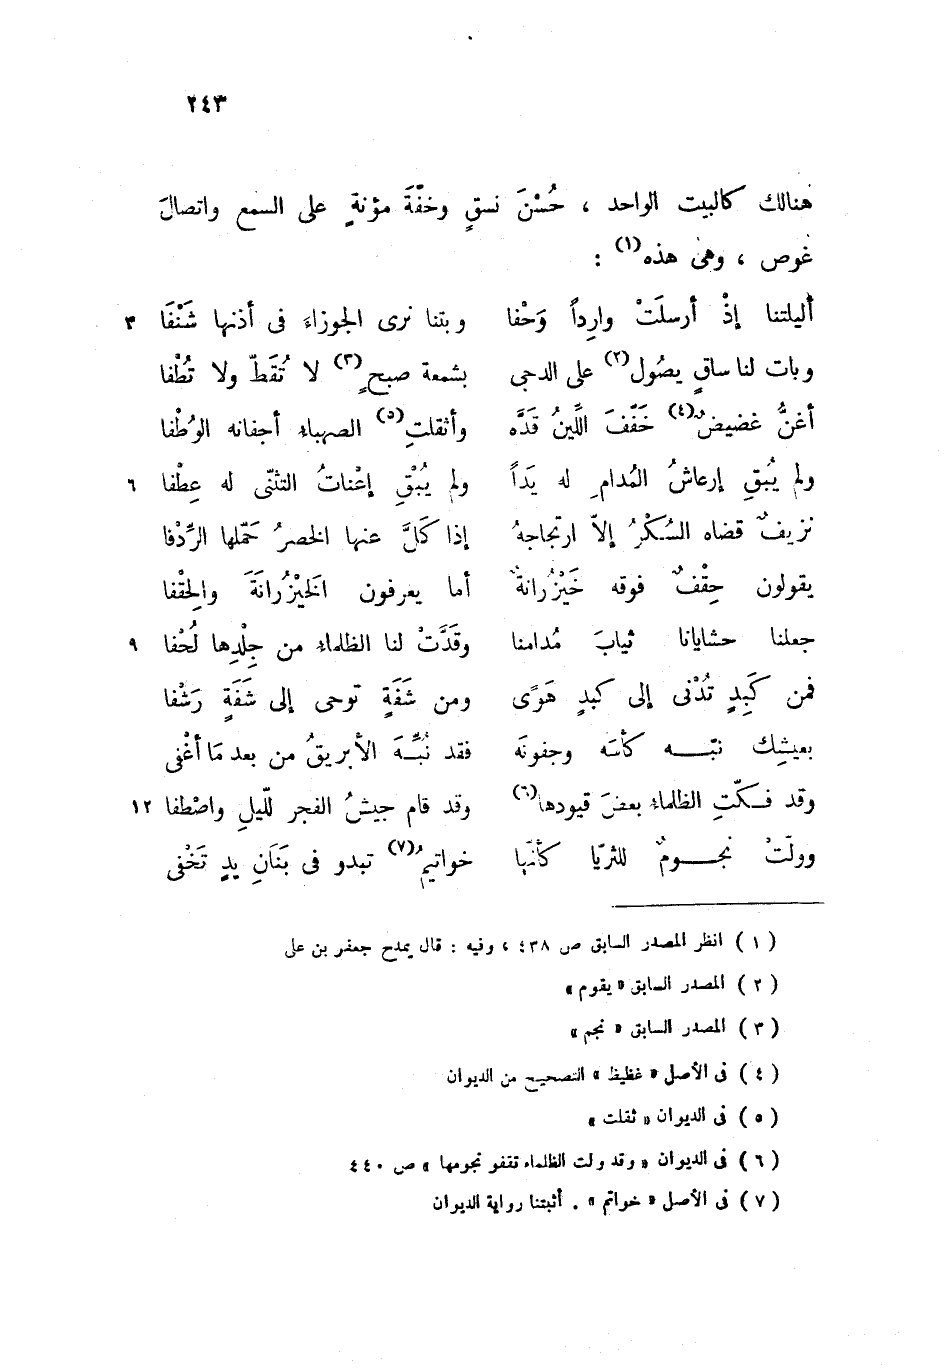 ٢٤٣
هنالك كالبيت الواحد ، حُسْنَ نسقٍ وخفَّةَ مؤنةٍ على السمع واتصالَ
غوص ، وهى هذه (١) :
أليلتنا إذْ أرسلَتْ وارِداً وَحْفا وبتنا نرى الجوزاءَ فى أذنها شَنْفَا ٣
وبات لنا ساقٍ يصُول (٢) على الدجى بشمعة صبحٍ (٣) لا تُقَطّ ولا تُطْفا
أغنُّ غضيضٌ (٤) خَفَّفَ اللَّينُ قدَّه وأثقلتِ (٥) الصهباء أجفانه الوُطْفا
ولم يُبقِ إرعاشُ المُدامِ له يَداً ولم يُبْقِ إعْناتُ التثنّى له عِطْفا ٦
نزيفٌ قضاه السُكْرُ إلاّ ارتجاجهُ إذا كَلَّ عنها الخصرُ حَمّلها الرِّدْفا
يقولون حِقْفٌ فوقه خَيْزُرانةٌ أما يعرفون الخَيْزُرانَةَ والحِقْفا
جعلنا حشايانا ثيابَ مُدامنا وقَدَّتْ لنا الظلماء من جِلْدِها لُحْفا ٩
فمن كَبِدٍ تُدْنى إلى كبدٍ هَوًى ومن شَفَةٍ توحى إلى شَفَةٍ رَشْفا
بعيشِك نبّـــه كأسَه وجفونَه فقد نُبِّـهَ الأبريقُ من بعد مَا أغْفى
وقد فـكّتِ الظلماء بعضَ قيودها (٦) وقد قام جيشُ الفجر للّيلِ واصْطفا ١٢
وولّتْ نجــومٌ للثريّا كأنّها خواتيمُ (٧) تبدو فى بَنَانِ يدٍ تَخْفى
( ١ ) انظر المصدر السابق ص ٤٣٨ ، وفيه : قال يمدح جعفر بن على
( ٢ ) المصدر السابق « يقوم »
( ٣ ) المصدر السابق « نجم »
( ٤ ) فى الأصل « غظيظ » التصحيح من الديوان
( ٥ ) فى الديوان « ثقلت »
( ٦ ) فى الديوان « وقد ولت الظلماء تقفو نجومها » ص ٤٤٠
( ٧ ) فى الأصل « خواتم » . أثبتنا رواية الديوان